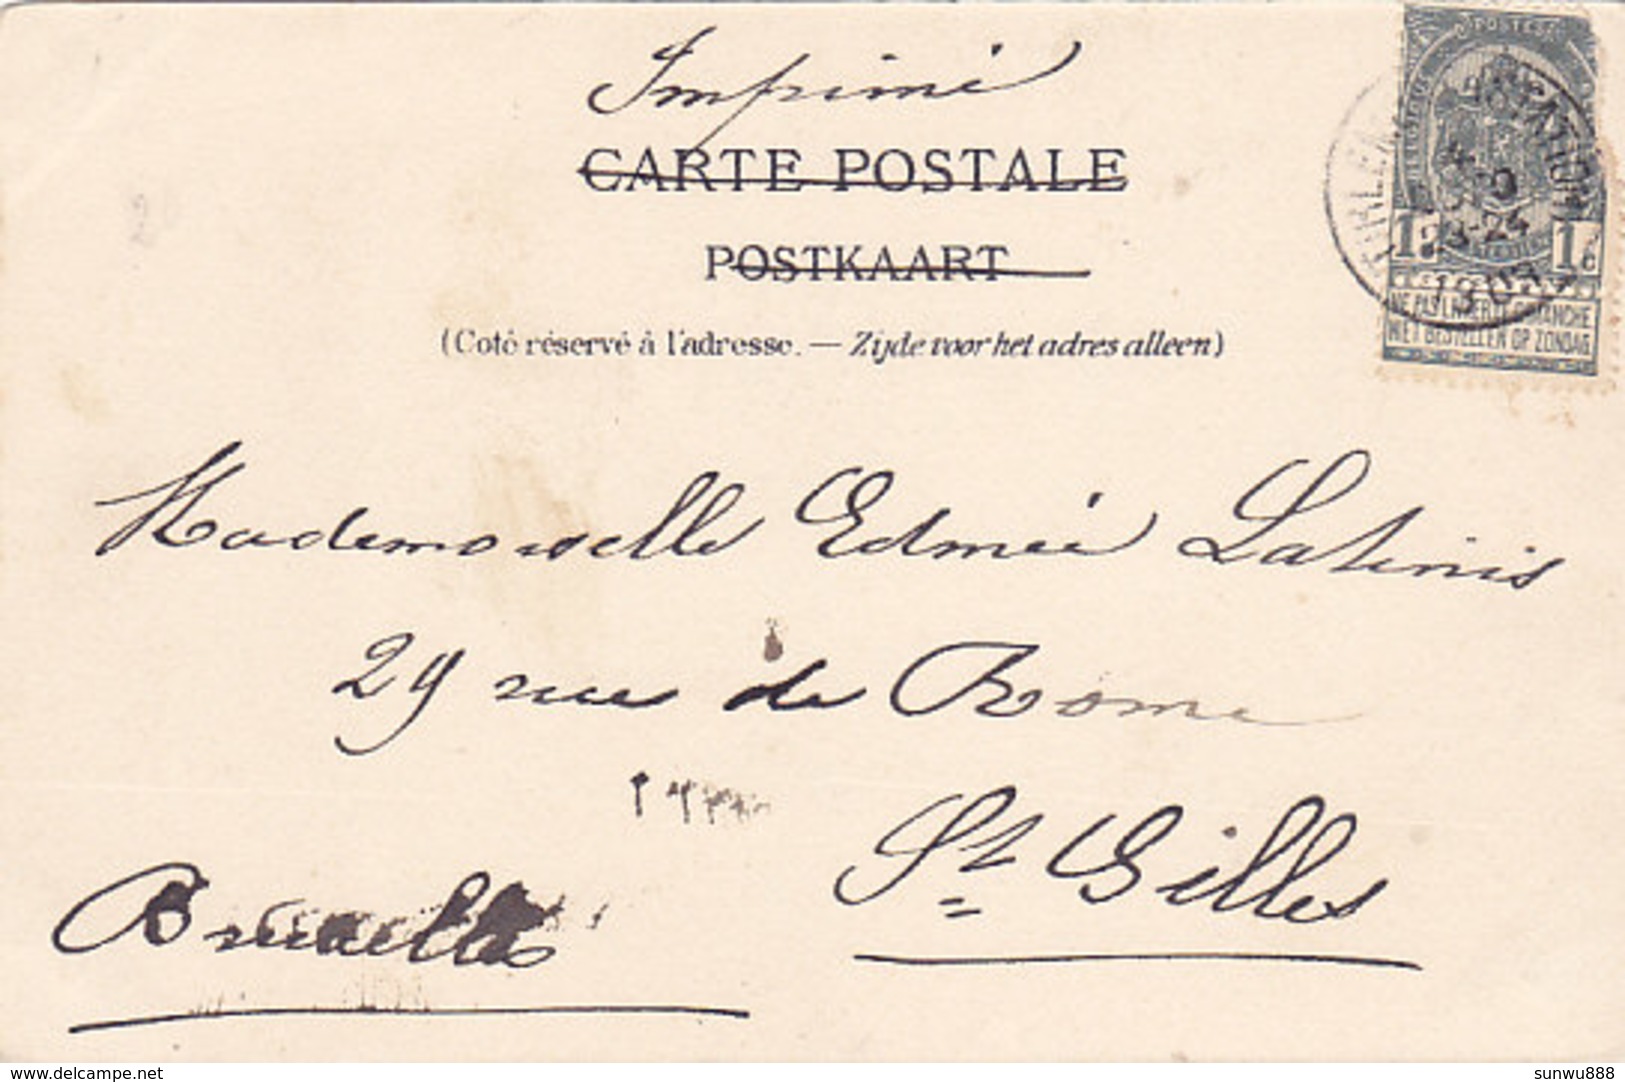 Imprimé
CARTE POSTALE
POSTKAART
(Coté réservé à l'adresse. — Zijde voor het adres alleen)
POSTES
STATION
1c 1c
1903
NE PAS LIVRER LE DIMANCHE
NIET BESTELLEN OP ZONDAG
Mademoiselle Edmée Latinis
29 rue de Rome
St Gilles
Bruxelles
www.delcampe.net
sunwu888